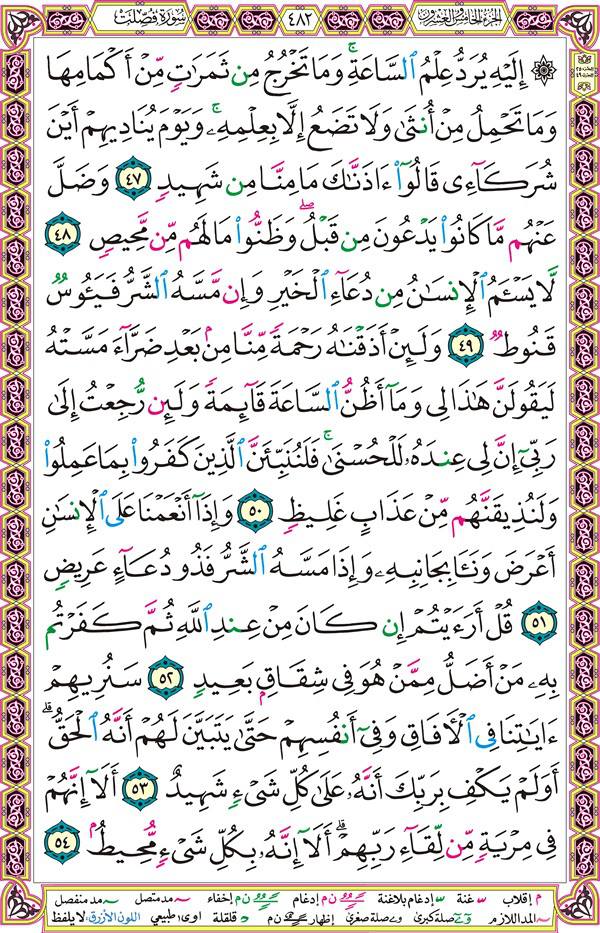 الجزء الخامس والعشرون
٤٨٢
سورة فصلت
۞ إِلَيْهِ يُرَدُّ عِلْمُ ٱلسَّاعَةِ ۚ وَمَا تَخْرُجُ مِن ثَمَرَٰتٍ مِّنْ أَكْمَامِهَا
وَمَا تَحْمِلُ مِنْ أُنثَىٰ وَلَا تَضَعُ إِلَّا بِعِلْمِهِۦ ۚ وَيَوْمَ يُنَادِيهِمْ أَيْنَ
شُرَكَآءِى قَالُوٓا۟ ءَاذَنَّٰكَ مَا مِنَّا مِن شَهِيدٍ ٤٧ وَضَلَّ
عَنْهُم مَّا كَانُوا۟ يَدْعُونَ مِن قَبْلُ ۖ وَظَنُّوا۟ مَا لَهُم مِّن مَّحِيصٍ ٤٨
لَّا يَسْـَٔمُ ٱلْإِنسَٰنُ مِن دُعَآءِ ٱلْخَيْرِ وَإِن مَّسَّهُ ٱلشَّرُّ فَيَـُٔوسٌ
قَنُوطٌ ٤٩ وَلَئِنْ أَذَقْنَٰهُ رَحْمَةً مِّنَّا مِنۢ بَعْدِ ضَرَّآءَ مَسَّتْهُ
لَيَقُولَنَّ هَٰذَا لِى وَمَآ أَظُنُّ ٱلسَّاعَةَ قَآئِمَةً وَلَئِن رُّجِعْتُ إِلَىٰ
رَبِّىٓ إِنَّ لِى عِندَهُۥ لَلْحُسْنَىٰ ۚ فَلَنُنَبِّئَنَّ ٱلَّذِينَ كَفَرُوا۟ بِمَا عَمِلُوا۟
وَلَنُذِيقَنَّهُم مِّنْ عَذَابٍ غَلِيظٍ ٥٠ وَإِذَآ أَنْعَمْنَا عَلَى ٱلْإِنسَٰنِ
أَعْرَضَ وَنَـَٔا بِجَانِبِهِۦ وَإِذَا مَسَّهُ ٱلشَّرُّ فَذُو دُعَآءٍ عَرِيضٍ
٥١ قُلْ أَرَءَيْتُمْ إِن كَانَ مِنْ عِندِ ٱللَّهِ ثُمَّ كَفَرْتُم
بِهِۦ مَنْ أَضَلُّ مِمَّنْ هُوَ فِى شِقَاقٍۭ بَعِيدٍ ٥٢ سَنُرِيهِمْ
ءَايَٰتِنَا فِى ٱلْءَافَاقِ وَفِىٓ أَنفُسِهِمْ حَتَّىٰ يَتَبَيَّنَ لَهُمْ أَنَّهُ ٱلْحَقُّ ۗ
أَوَلَمْ يَكْفِ بِرَبِّكَ أَنَّهُۥ عَلَىٰ كُلِّ شَىْءٍ شَهِيدٌ ٥٣ أَلَآ إِنَّهُمْ
فِى مِرْيَةٍ مِّن لِّقَآءِ رَبِّهِمْ ۗ أَلَآ إِنَّهُۥ بِكُلِّ شَىْءٍ مُّحِيطٌۢ ٥٤
م إقلاب غنة إدغام بلاغنة ن م إدغام ن م إخفاء مد متصل مد منفصل
المد اللازم صلة كبرى صلة صغرى إظهار ن م قلقلة اوى طبيعي اللون الأزرق: لا يلفظ